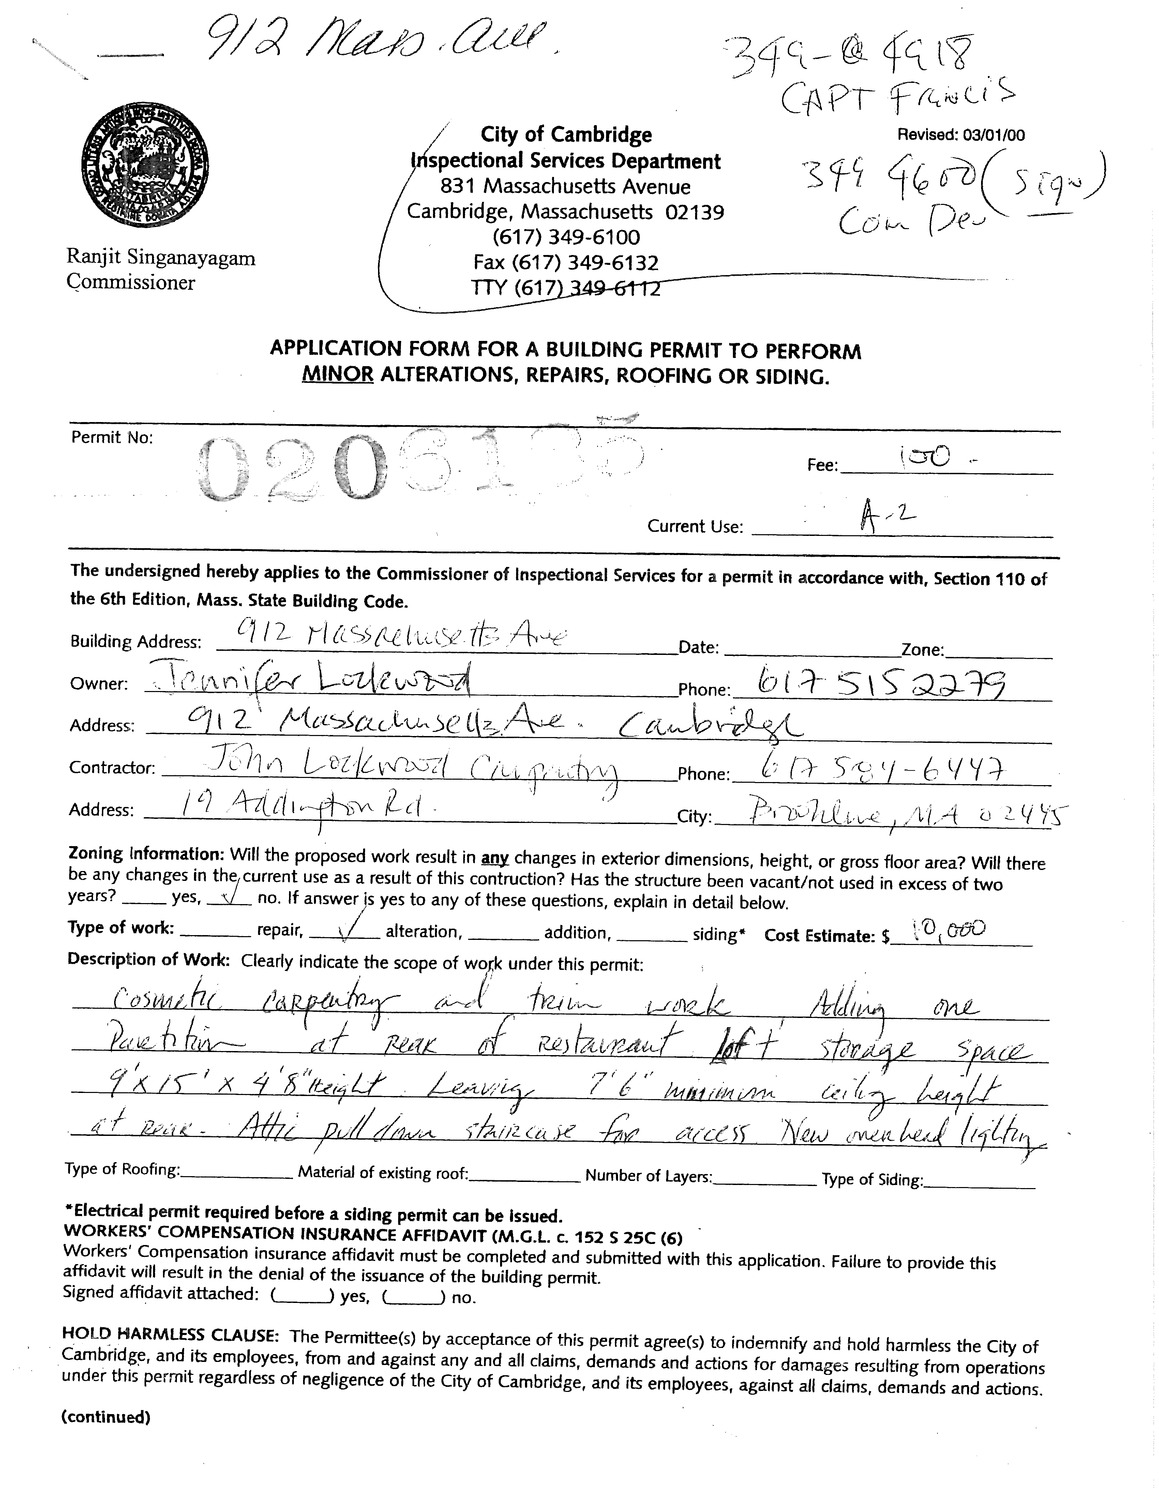 912 Mass. Ave.
349-4918
CAPT Francis
City of Cambridge
Inspectional Services Department
831 Massachusetts Avenue
Cambridge, Massachusetts 02139
(617) 349-6100
Fax (617) 349-6132
TTY (617) 349-6112
Revised: 03/01/00
349 4600 (sign)
Com Dev
Ranjit Singanayagam
Commissioner
APPLICATION FORM FOR A BUILDING PERMIT TO PERFORM
MINOR ALTERATIONS, REPAIRS, ROOFING OR SIDING.
Permit No: 0206135
Fee: 100 -
Current Use: A-2
The undersigned hereby applies to the Commissioner of Inspectional Services for a permit in accordance with, Section 110 of
the 6th Edition, Mass. State Building Code.
Building Address: 912 Massachusetts Ave Date: Zone:
Owner: Jennifer Lockwood Phone: 617 515 2279
Address: 912 Massachusetts Ave. Cambridge
Contractor: John Lockwood Carpentry Phone: 617 584-6447
Address: 19 Addington Rd. City: Brookline, MA 02445
Zoning Information: Will the proposed work result in any changes in exterior dimensions, height, or gross floor area? Will there
be any changes in the current use as a result of this contruction? Has the structure been vacant/not used in excess of two
years? ____ yes, √ no. If answer is yes to any of these questions, explain in detail below.
Type of work: ____ repair, √ alteration, ____ addition, ____ siding* Cost Estimate: $ 10,000
Description of Work: Clearly indicate the scope of work under this permit:
Cosmetic carpentry and trim work, Adding one
Partition at rear of restaurant loft storage space
9'x15'x4'8" Height. Leaving 7'6" minimum ceiling height
at rear. Attic pull down staircase for access New overhead lighting
Type of Roofing: Material of existing roof: Number of Layers: Type of Siding:
*Electrical permit required before a siding permit can be issued.
WORKERS' COMPENSATION INSURANCE AFFIDAVIT (M.G.L. c. 152 S 25C (6)
Workers' Compensation insurance affidavit must be completed and submitted with this application. Failure to provide this
affidavit will result in the denial of the issuance of the building permit.
Signed affidavit attached: (____) yes, (____) no.
HOLD HARMLESS CLAUSE: The Permittee(s) by acceptance of this permit agree(s) to indemnify and hold harmless the City of
Cambridge, and its employees, from and against any and all claims, demands and actions for damages resulting from operations
under this permit regardless of negligence of the City of Cambridge, and its employees, against all claims, demands and actions.
(continued)